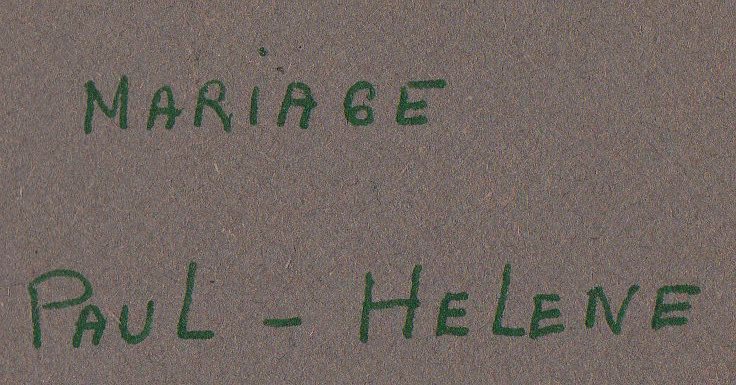 MARiAGE
PAUL - HELENE